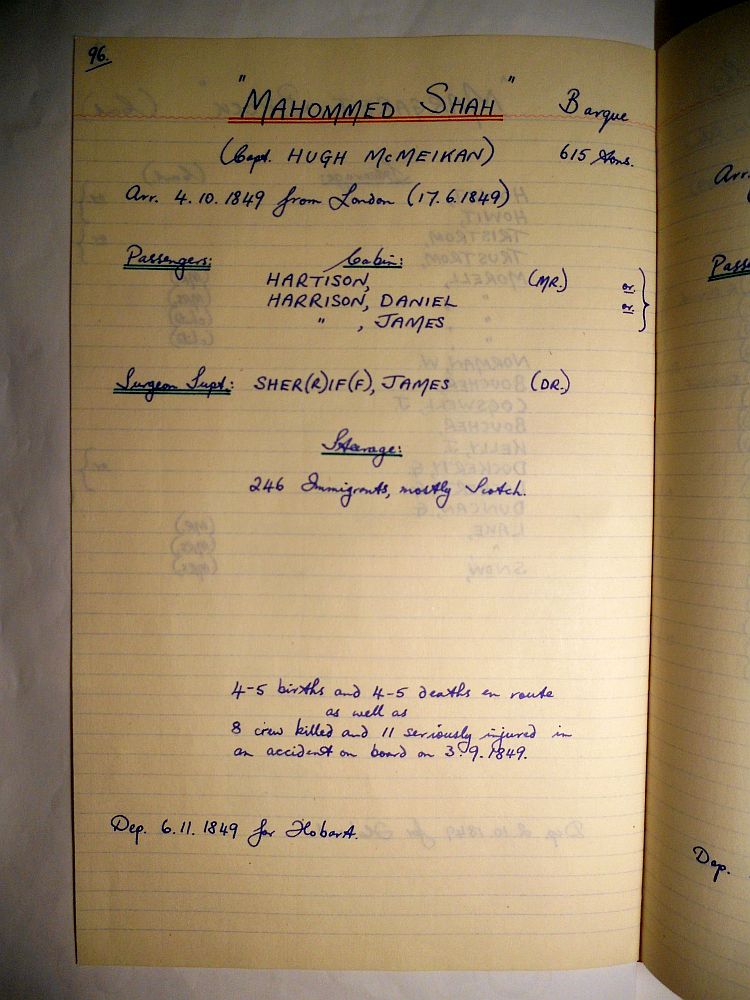 96.
"MAHOMMED SHAH" Barque
(Capt. HUGH McMEIKAN) 615 tons.
Arr. 4.10.1849 from London (17.6.1849)
Passengers: Cabin:
HARTISON, (MR.)
HARRISON, DANIEL or
" , JAMES or
Surgeon Supt: SHER(R)IF(F), JAMES (DR.)
Steerage:
246 Immigrants, mostly Scotch.
4-5 births and 4-5 deaths en route
as well as
8 crew killed and 11 seriously injured in
an accident on board on 3.9.1849.
Dep. 6.11.1849 for Hobart.
Arr.
Passe
Dep.